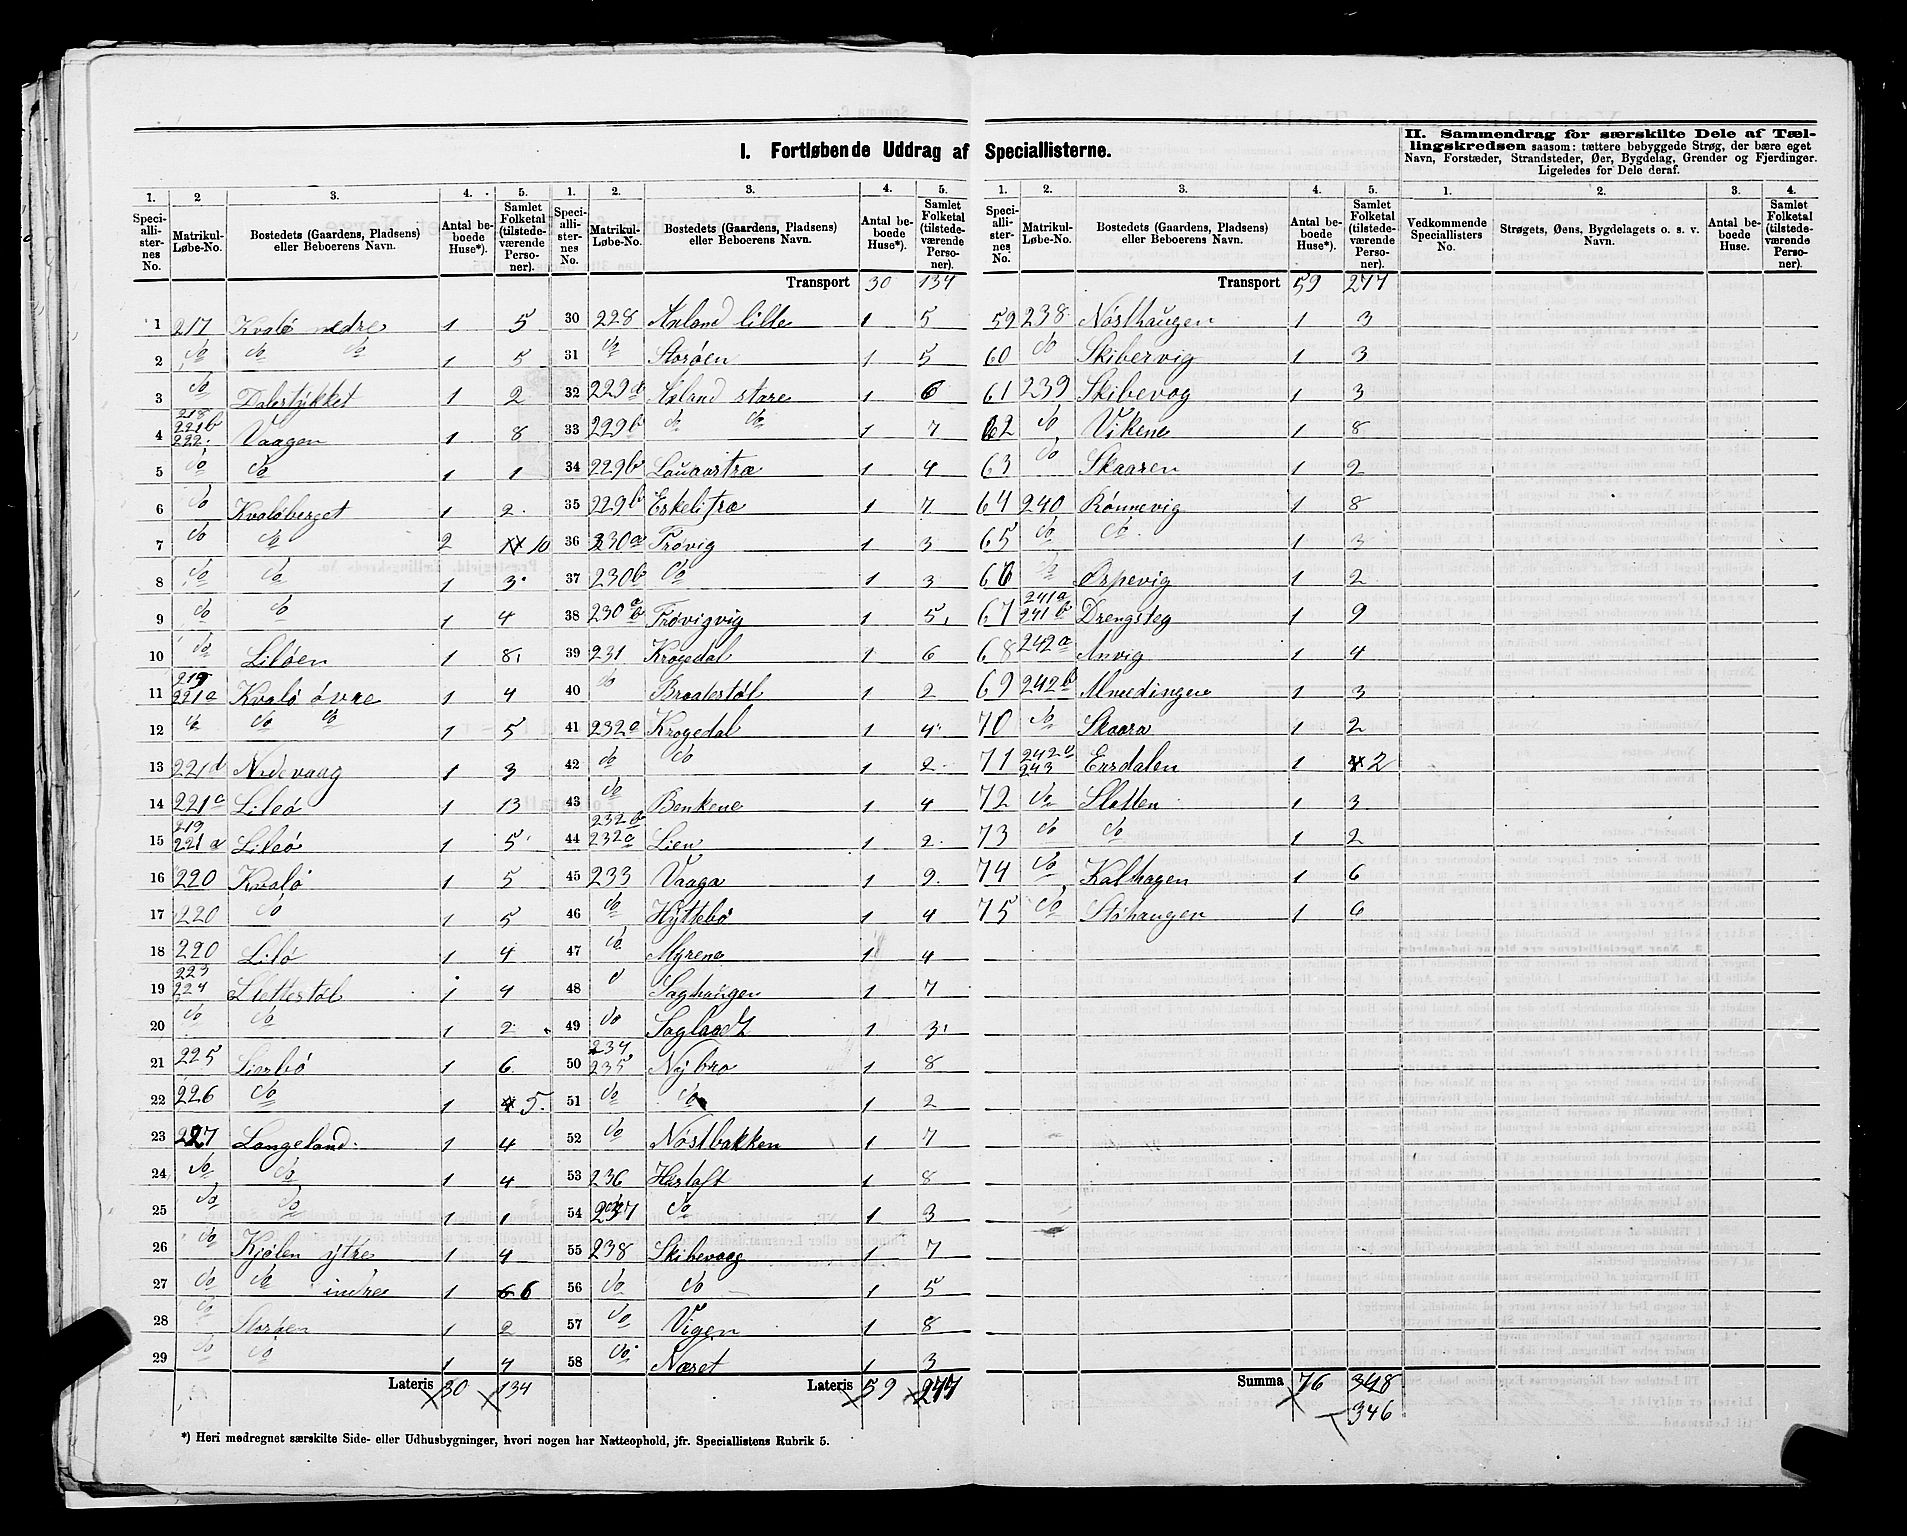 I. Fortløbende Uddrag af Speciallisterne.
II. Sammendrag for særskilte Dele af Tæl-
lingskredsen saasom: tættere bebyggede Strøg, der bære eget
Navn, Forstæder, Strandsteder, Øer, Bygdelag, Grender og Fjerdinger.
Ligeledes for Dele deraf.
1. 2 3. 4. 5.
Speciallisternes No. Matrikul-Løbe-No. Bostedets (Gaardens, Pladsens) eller Beboerens Navn. Antal beboede Huse*). Samlet Folketal (tilstedeværende Personer).
1 217 Kvalø nedre 1 5
2 do do do 1 5
3 do Dalestykket 1 2
4 218 221b 222. Vaagen 1 8
5 do do 1 1
6 do Kvaløberget 1 2
7 do do 2 10
8 do do 1 3
9 do do 1 4
10 do Liløen 1 8
11 219 221a Kvalø øvre 1 4
12 do do do 1 5
13 221d Nedevaag 1 3
14 221c Lileø 1 13
15 219 221a Lileø 1 5
16 220 Kvalø 1 5
17 220 do 1 5
18 220 Lilø 1 4
19 223 224 Slettestøl 1 4
20 do do 1 2
21 225 Liesbø 1 6
22 226 do 1 5
23 227 Langeland 1 4
24 do do 1 4
25 do do 1 1
26 do Kjølen ytre 1 4
27 do do indre 1 6
28 do Storøen 1 2
29 do do 1 4
Lateris 30 134
1. 2. 3. 4. 5.
Speciallisternes No. Matrikul-Løbe-No. Bostedets (Gaardens, Pladsens) eller Beboerens Navn. Antal beboede Huse*). Samlet Folketal (tilstedeværende Personer).
Transport 30 134
30 228 Aaland lille 1 5
31 do Storøen 1 5
32 229a Aaland store 1 6
33 229b do do 1 7
34 229b Louaastræ 1 4
35 229b Eskelitræ 1 7
36 230a Trøvig 1 3
37 230b do 1 3
38 230 a b Trøvigvig 1 5
39 231 Krogedal 1 6
40 do Braatestøl 1 2
41 232a Krogedal 1 4
42 do do 1 2
43 do Benkene 1 4
44 232b 232a Lien 1 2
45 233 Vaaga 1 9
46 do Hyttebø 1 4
47 do Myrene 1 4
48 do Saghaugen 1 7
49 do Saglandt 1 3
50 234 235 Nybro 1 8
51 do do 1 2
52 do Nøstbakken 1 7
53 236 Hestoft 1 8
54 237 do 1 3
55 238 Skibevaag 1 7
56 do do 1 5
57 do Vigen 1 8
58 do Næset 1 3
Lateris 59 277
1. 2. 3. 4. 5.
Speciallisternes No. Matrikul-Løbe-No. Bostedets (Gaardens, Pladsens) eller Beboerens Navn. Antal beboede Huse*). Samlet Folketal (tilstedeværende Personer).
Transport 59 277
59 238 Nøsthaugen 1 3
60 do Skibervig 1 3
61 239 Skibevog 1 3
62 do Vikene 1 8
63 do Skaaren 1 2
64 240 Rønnevig 1 8
65 do do 1 3
66 do Ørpevig 1 2
67 241a 241b Drengsteg 1 9
68 242a Anvig 1 4
69 242b Almedingen 1 3
70 do Skaara 1 2
71 242a 243 Ersdalen 1 2
72 do Sletten 1 3
73 do do 1 2
74 do Kalhagen 1 6
75 do Støhaugen 1 6
Summa 76 348
346
1. 2. 3. 4.
Vedkommende Speciallisters No. Strøgets, Øens, Bygdelagets o. s. v. Navn. Antal beboede Huse. Samlet Folketal (tilstedeværende Personer).
*) Heri medregnet særskilte Side- eller Udhusbygninger, hvori nogen har Natteophold, jfr. Speciallistens Rubrik 5.